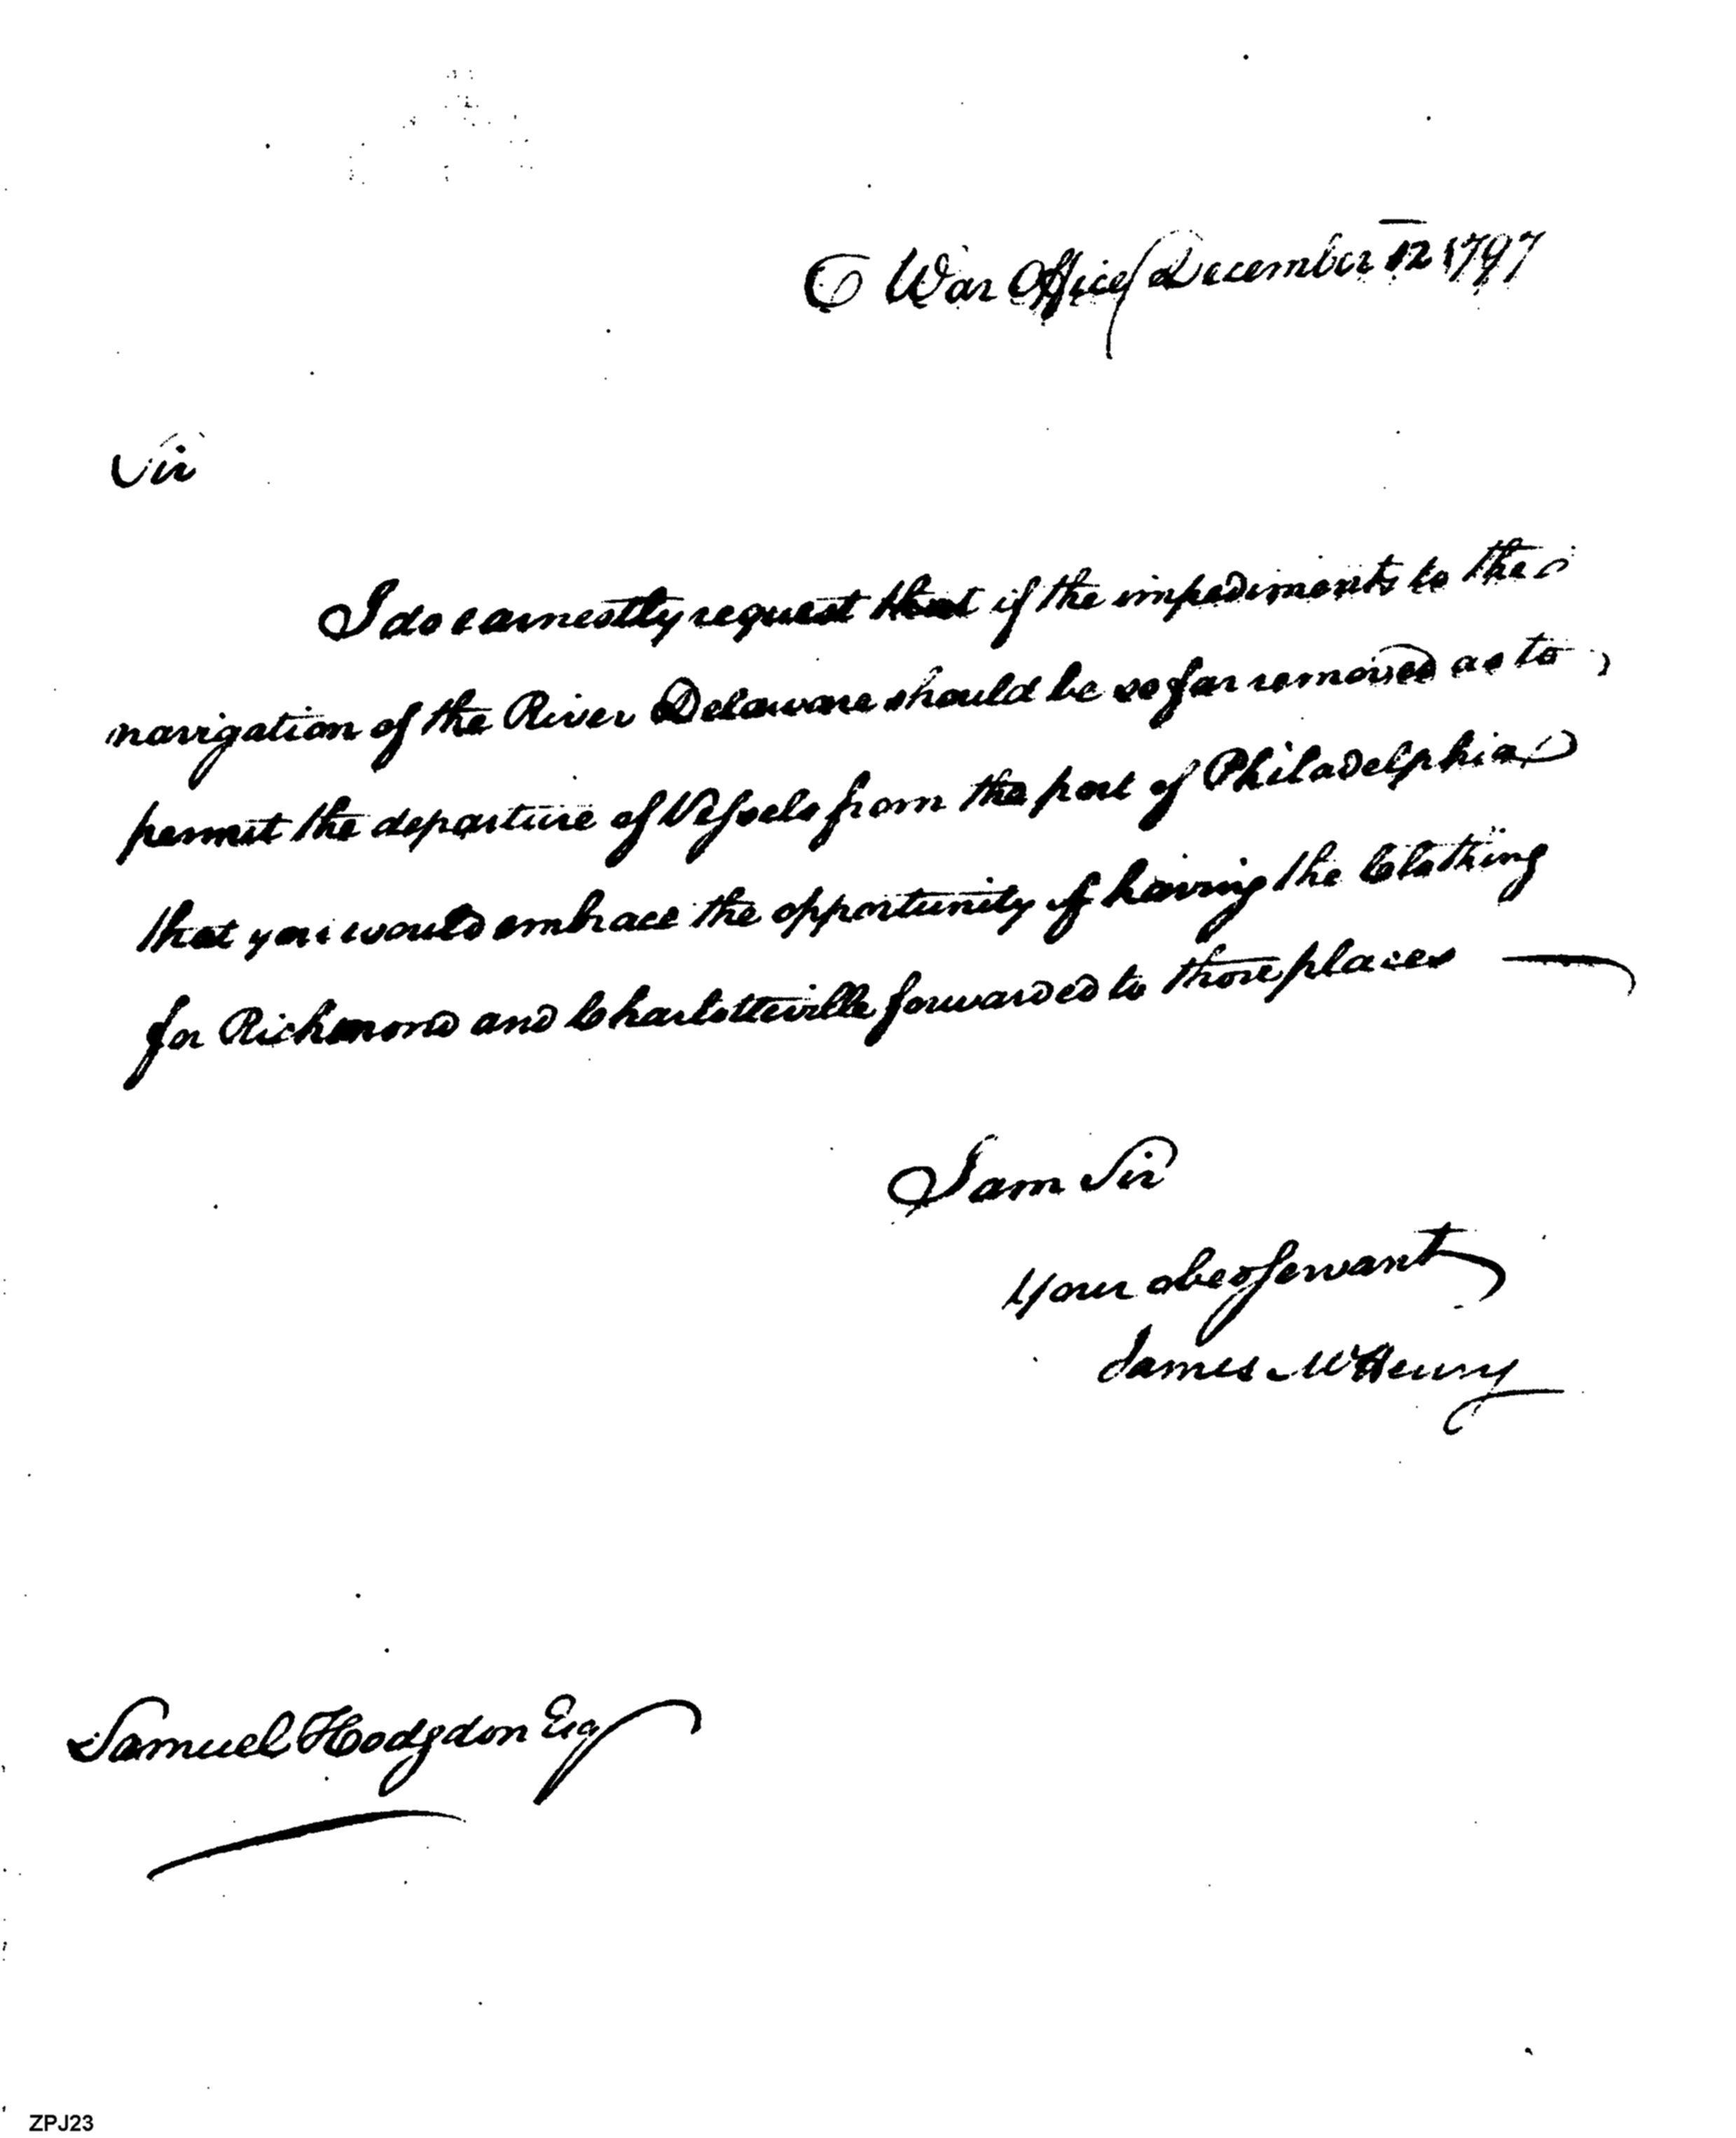 War Office December 12 1797
Sir
I do earnestly request that if the impediments to the
navigation of the River Delaware should be so far removed as to
permit the departure of Vessels from the port of Philadelphia
that you would embrace the opportunity of having the Clothing
for Richmond and Charlotteville forwarded to those places —
I am Sir
Your obed servant
James McHenry
Samuel Hodgdon Esq
ZPJ23